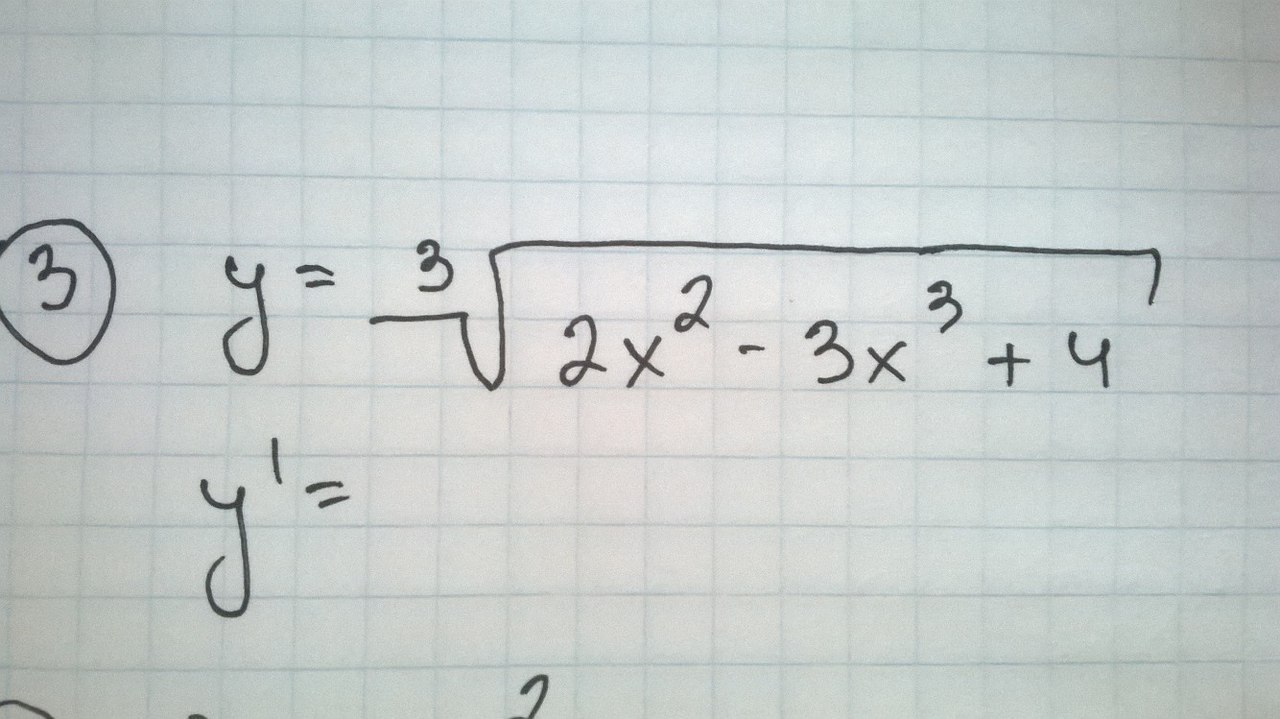 ③ y = ∛(2x² - 3x³ + 4)
y' =